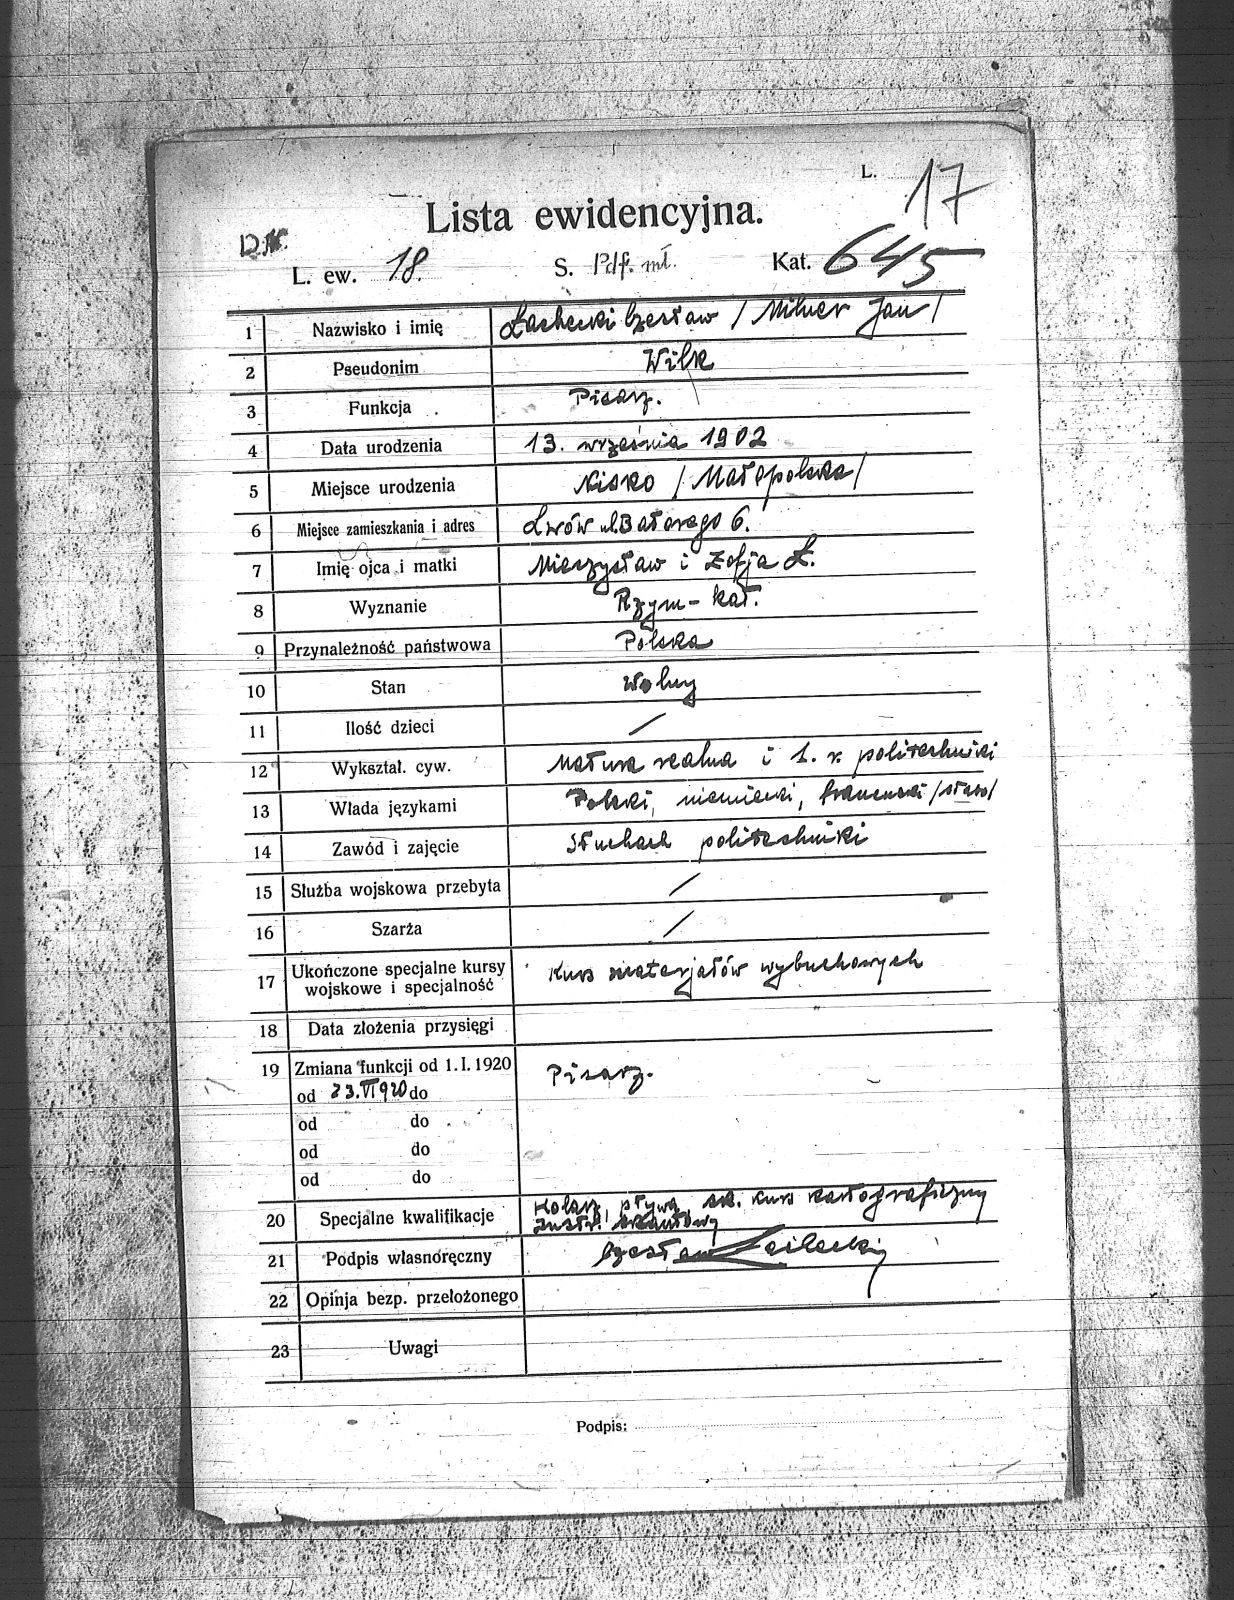 L. 17
Lista ewidencyjna.
L. ew. 18. S. Pdf. mł. Kat. 645
1 Nazwisko i imię Łachecki Czesław / Milner Jan /
2 Pseudonim Wilk
3 Funkcja Pisarz.
4 Data urodzenia 13. września 1902
5 Miejsce urodzenia Nisko / Małopolska /
6 Miejsce zamieszkania i adres Lwów ul. Batorego 6.
7 Imię ojca i matki Mieczysław i Zofja Ł.
8 Wyznanie Rzym-kat.
9 Przynależność państwowa Polska
10 Stan Wolny
11 Ilość dzieci /
12 Wykształ. cyw. Matura realna i 1. r. politechniki
13 Włada językami Polski, niemiecki, francuski /słabo/
14 Zawód i zajęcie Słuchacz politechniki
15 Służba wojskowa przebyta /
16 Szarża /
17 Ukończone specjalne kursy
wojskowe i specjalność Kurs materjałów wybuchowych
18 Data złożenia przysięgi
19 Zmiana funkcji od 1. I. 1920 Pisarz.
od 23.VI 920 do
od do
od do
od do
20 Specjalne kwalifikacje Kolarz, pływa, kurs kartograficzny
Instr. skautowy
21 Podpis własnoręczny Czesław
22 Opinja bezp. przełożonego
23 Uwagi
Podpis: